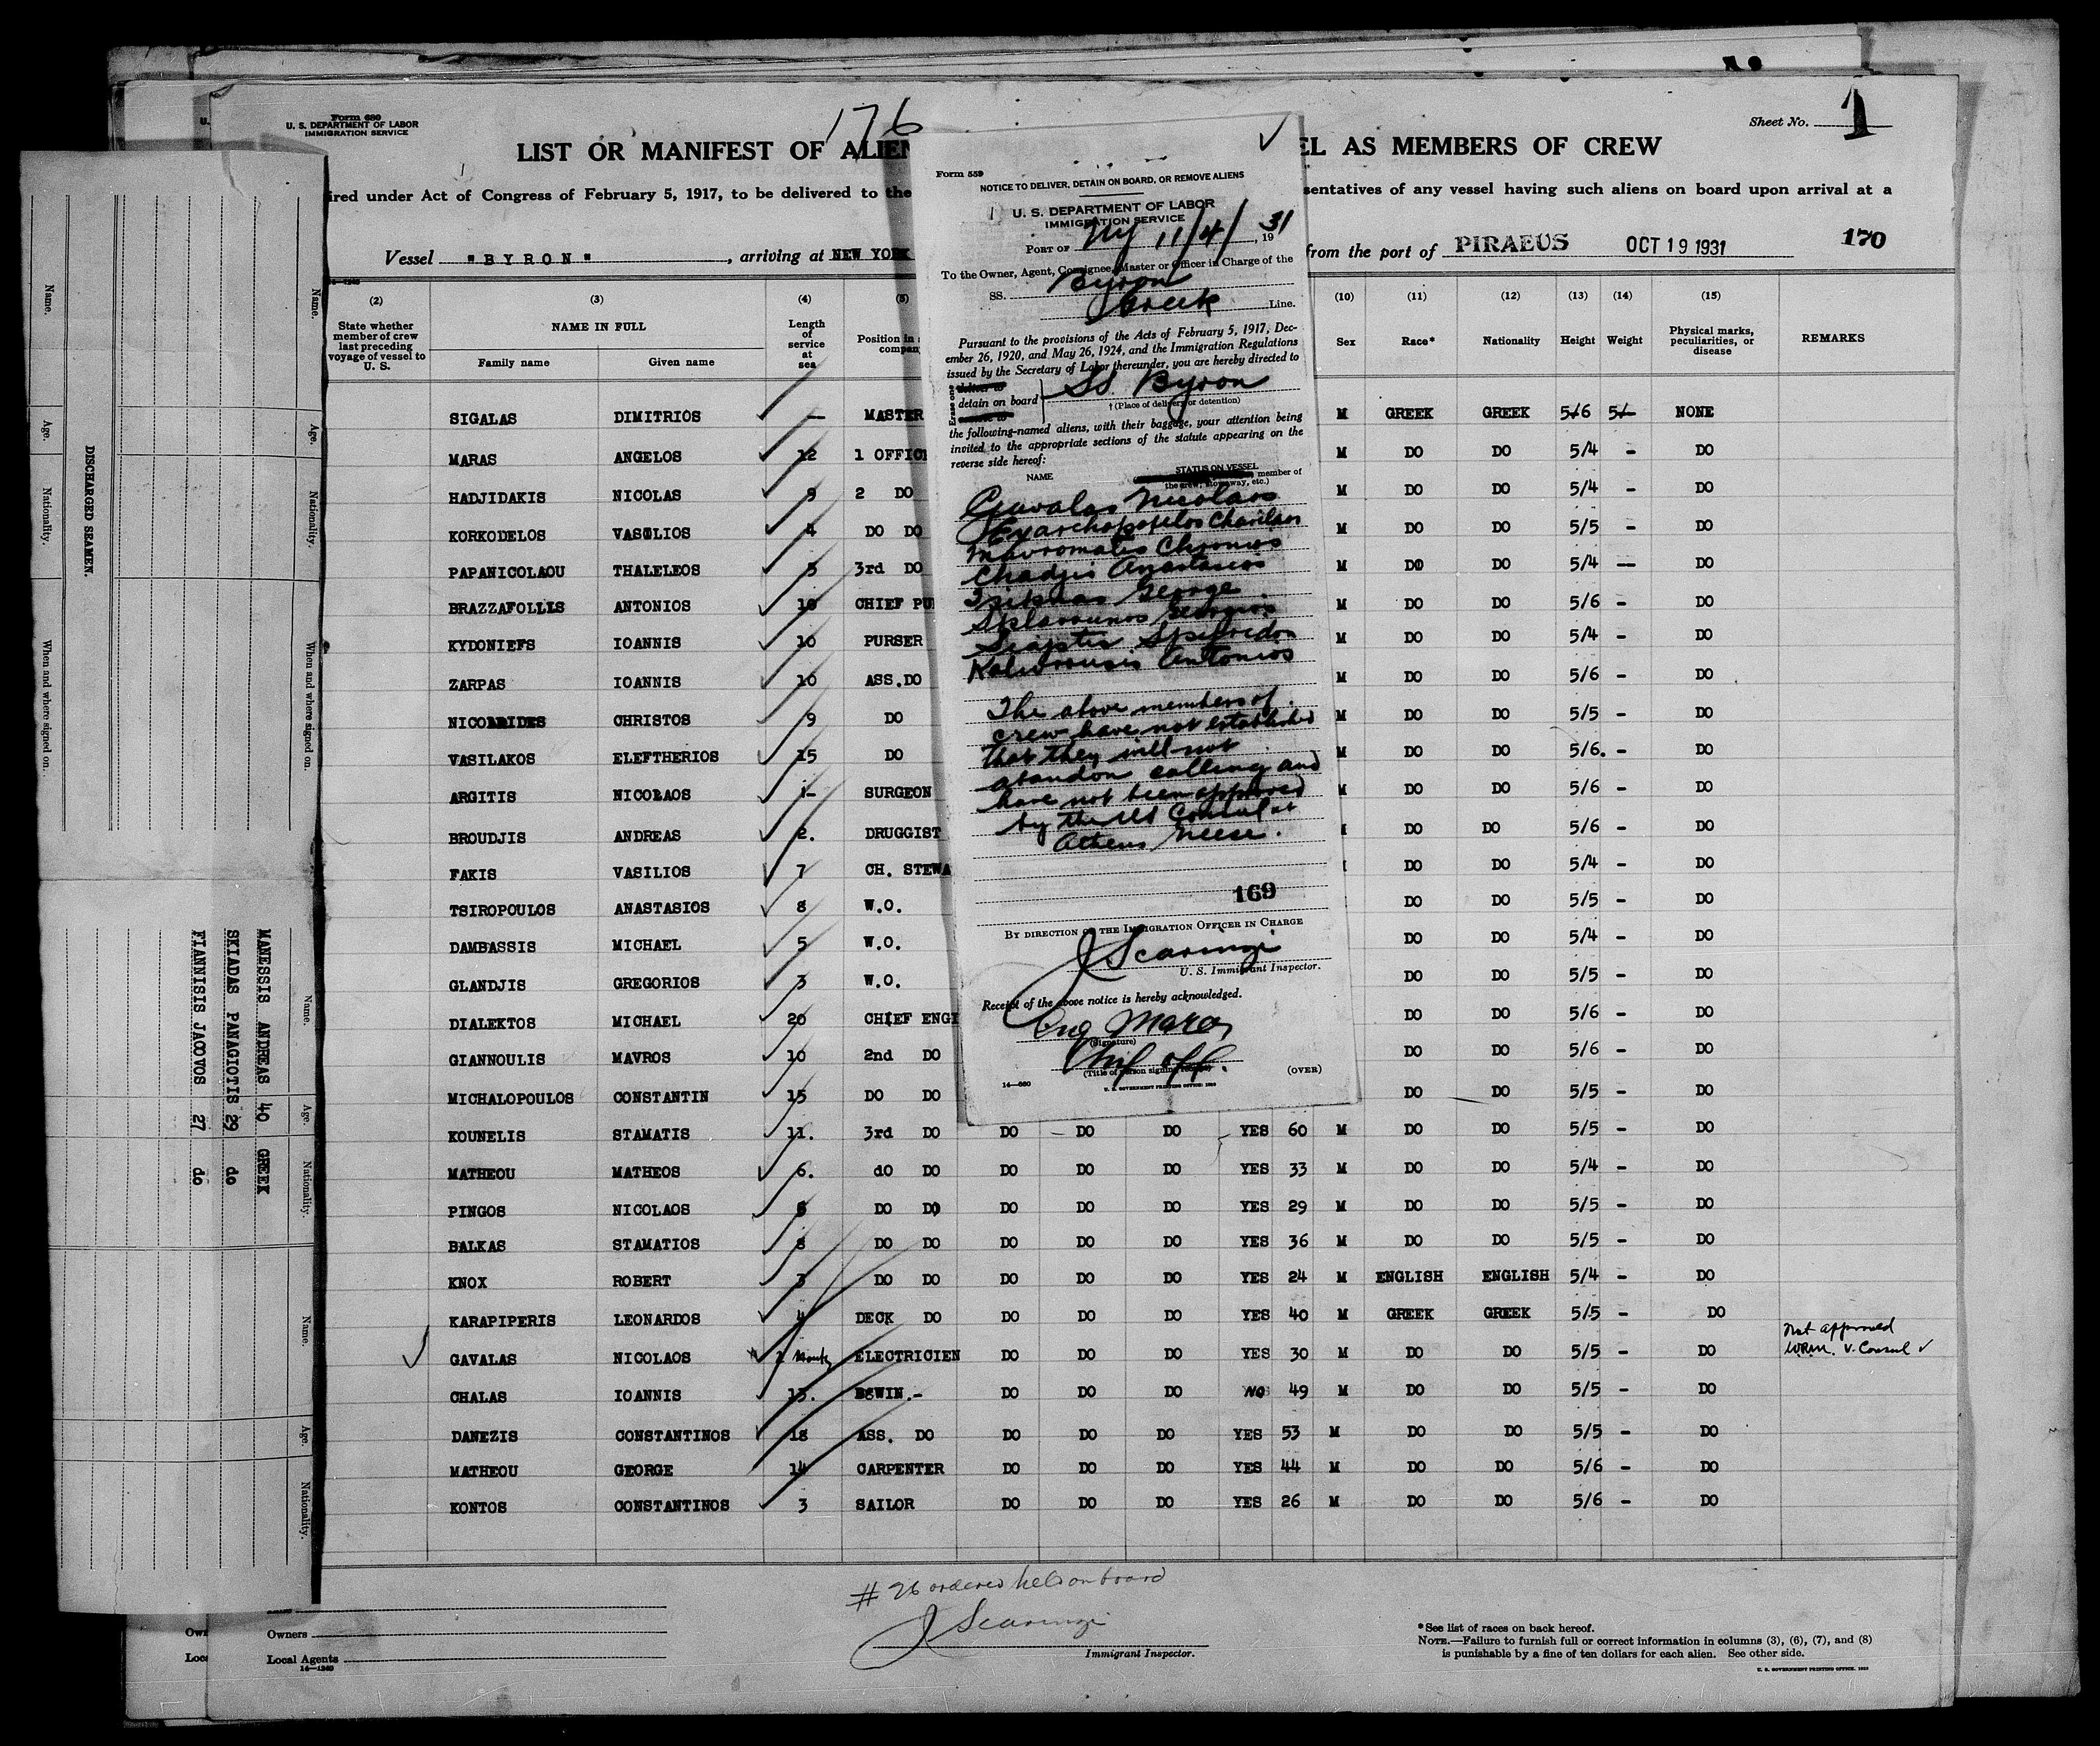 Form 680
U. S. DEPARTMENT OF LABOR
IMMIGRATION SERVICE
176
Sheet No. 1
LIST OR MANIFEST OF ALIEN
EL AS MEMBERS OF CREW
ired under Act of Congress of February 5, 1917, to be delivered to the
sentatives of any vessel having such aliens on board upon arrival at a
Vessel "BYRON", arriving at NEW YORK
from the port of PIRAEUS OCT 19 1931 170
(2) (3) (4) (5) (10) (11) (12) (13) (14) (15)
State whether member of crew last preceding voyage of vessel to U. S.
NAME IN FULL
Family name Given name
Length of service at sea
Position in
company
Sex Race* Nationality Height Weight Physical marks, peculiarities, or disease REMARKS
SIGALAS DIMITRIOS — MASTER M GREEK GREEK 5/6 NONE
MARAS ANGELOS 12 1 OFFIC M DO DO 5/4 - DO
HADJIDAKIS NICOLAS 9 2 DO M DO DO 5/4 - DO
KORKODELOS VASILIOS 4 DO DO M DO DO 5/5 - DO
PAPANICOLAOU THALELEOS 5 3rd DO M DO DO 5/4 — DO
BRAZZAFOLLIS ANTONIOS 10 CHIEF PU M DO DO 5/6 - DO
KYDONIEFS IOANNIS 10 PURSER M DO DO 5/4 - DO
ZARPAS IOANNIS 10 ASS.DO M DO DO 5/6 - DO
CHRISTOS 9 DO M DO DO 5/5 - DO
VASILAKOS ELEFTHERIOS 15 DO M DO DO 5/6. - DO
ARGITIS NICOLAOS 1- SURGEON M DO DO 5/6 - DO
BROUDJIS ANDREAS 2. DRUGGIST DO DO 5/6 - DO
FAKIS VASILIOS 7 CH. STEWA DO DO 5/4 - DO
TSIROPOULOS ANASTASIOS 8 W.O. DO DO 5/5 - DO
DAMBASSIS MICHAEL 5 W.O. DO DO 5/4 - DO
GLANDJIS GREGORIOS 3 W.O. DO DO 5/5 - DO
DIALEKTOS MICHAEL 20 CHIEF ENGI DO DO 5/6 - DO
GIANNOULIS MAVROS 10 2nd DO DO DO 5/6 - DO
MICHALOPOULOS CONSTANTIN 15 DO DO DO DO 5/5 - DO
KOUNELIS STAMATIS 11. 3rd DO DO DO DO YES 60 M DO DO 5/5 - DO
MATHEOU MATHEOS 6. dO DO DO DO DO YES 33 M DO DO 5/4 - DO
PINGOS NICOLAOS DO DO DO DO DO YES 29 M DO DO 5/5 - DO
BALKAS STAMATIOS 8 DO DO DO DO DO YES 36 M DO DO 5/5 - DO
KNOX ROBERT 3 DO DO DO DO DO YES 24 M ENGLISH ENGLISH 5/4 - DO
KARAPIPERIS LEONARDOS 4 DECK DO DO DO DO YES 40 M GREEK GREEK 5/5 - DO
GAVALAS NICOLAOS ELECTRICIEN DO DO DO YES 30 M DO DO 5/5 - DO Not approved
WRM. V. Consul
CHALAS IOANNIS 15. DO DO DO NO 49 M DO DO 5/5 - DO
DANEZIS CONSTANTINOS 18 ASS. DO DO DO DO YES 53 M DO DO 5/5 - DO
MATHEOU GEORGE 14 CARPENTER DO DO DO YES 44 M DO DO 5/6 - DO
KONTOS CONSTANTINOS 3 SAILOR DO DO DO YES 26 M DO DO 5/6 - DO
# 26 ordered held on board
J Scaringi
Immigrant Inspector.
Owners
Local Agents
14—1240
*See list of races on back hereof.
NOTE.—Failure to furnish full or correct information in columns (3), (6), (7), and (8)
is punishable by a fine of ten dollars for each alien. See other side.
Form 559
NOTICE TO DELIVER, DETAIN ON BOARD, OR REMOVE ALIENS
U. S. DEPARTMENT OF LABOR
IMMIGRATION SERVICE
PORT OF NY 11/4/, 1931
To the Owner, Agent, Consignee, Master or Officer in Charge of the
SS. Byron
Greek Line.
Pursuant to the provisions of the Acts of February 5, 1917, Dec-
ember 26, 1920, and May 26, 1924, and the Immigration Regulations
issued by the Secretary of Labor thereunder, you are hereby directed to
Erase one
detain on board SS. Byron
† (Place of delivery or detention)
the following-named aliens, with their baggage, your attention being
invited to the appropriate sections of the statute appearing on the
reverse side hereof:
NAME STATUS ON VESSEL
member of
the crew, stowaway, etc.)
Gavalas Nicolaos
Exarchopopelos Charilaos
Mavromatis Chronis
Chadjis Anastasios
George
Sklavounos Georgios
Siaptis Spiridon
Antonios
The above members of
crew have not established
that they will not
abandon calling and
have not been approved
by the US Consul at
Athens Greece.
169
BY DIRECTION OF THE IMMIGRATION OFFICER IN CHARGE
J Scaringi
U. S. Immigrant Inspector.
Receipt of the above notice is hereby acknowledged.
Ang Maras
(Signature)
Chif off.
(Title of person signing)
14—680
U. S. GOVERNMENT PRINTING OFFICE
(OVER)
DISCHARGED SEAMEN.
Name. Age. Nationality. When and where signed on.
Name. Age. Nationality. When and where signed on.
Name. Age. Nationality.
MANESSIS ANDREAS 40 GREEK
SKIADAS PANAGIOTIS 29 do
FIANNISIS JACOVOS 27 do
Name. Age. Nationality.